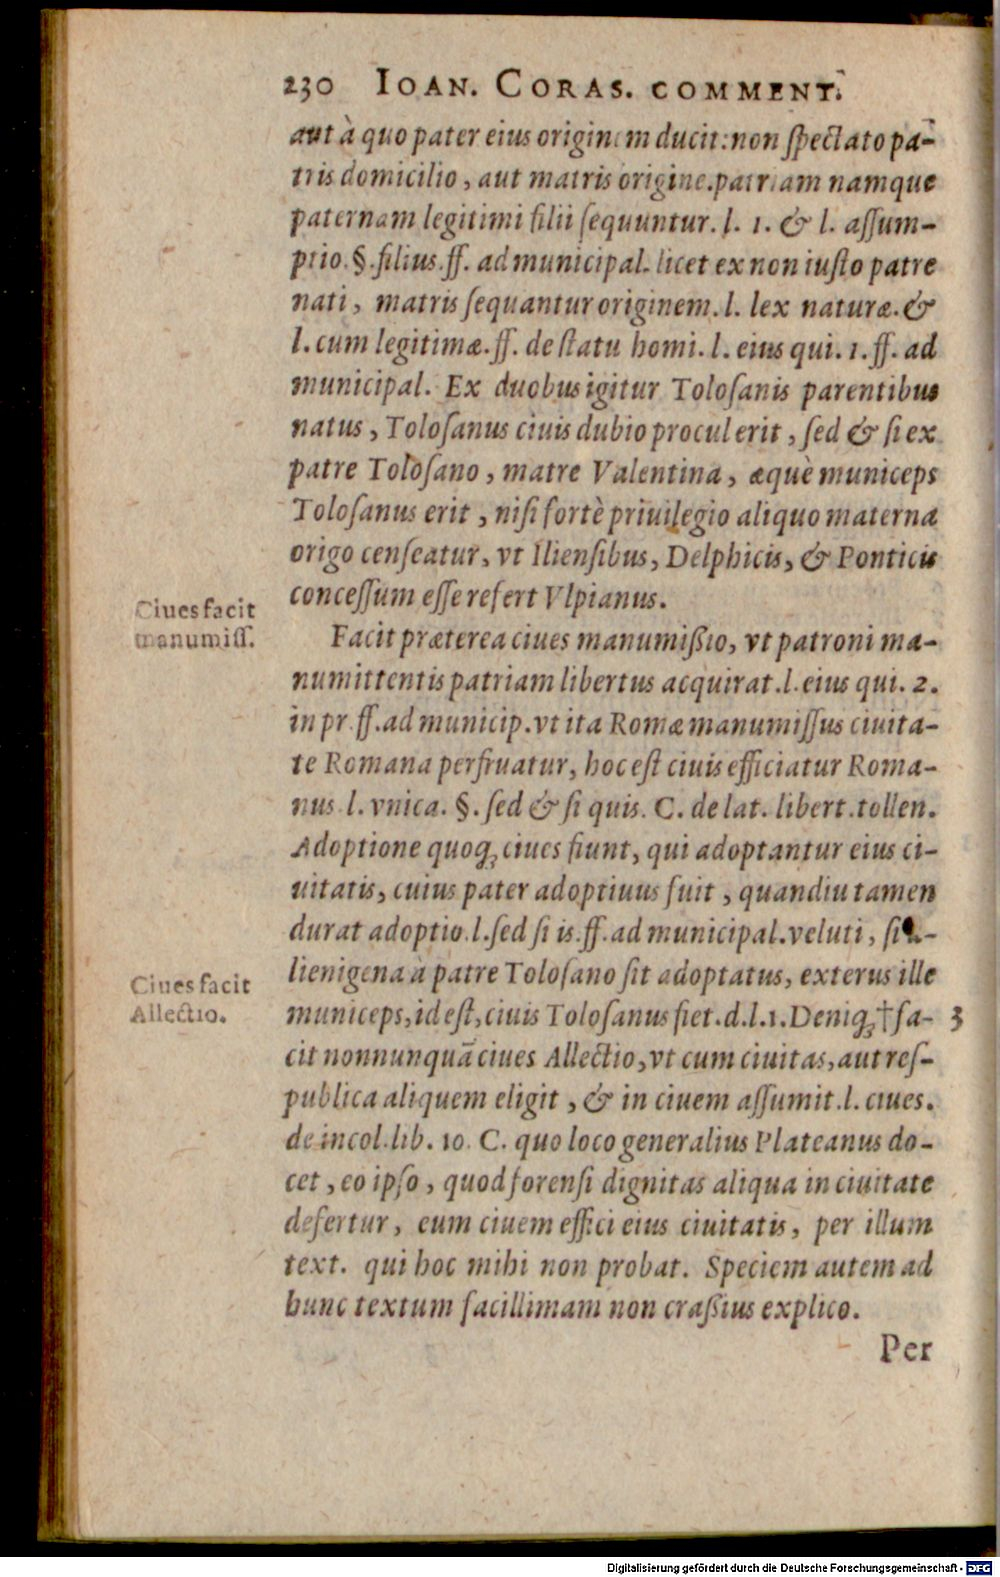 230 IOAN. CORAS. COMMENT.
aut à quo pater eius originem ducit: non spectato pa-
tris domicilio, aut matris origine. patriam namque
paternam legitimi filii sequuntur. l. 1. & l. assum-
ptio. §. filius. ff. ad municipal. licet ex non iusto patre
nati, matris sequantur originem. l. lex naturæ. &
l. cum legitimæ. ff. de statu homi. l. eius qui. 1. ff. ad
municipal. Ex duobus igitur Tolosanis parentibus
natus, Tolosanus ciuis dubio procul erit, sed & si ex
patre Tolosano, matre Valentina, æquè municeps
Tolosanus erit, nisi fortè priuilegio aliquo materna
origo censeatur, vt Iliensibus, Delphicis, & Ponticis
concessum esse refert Vlpianus.
Ciues facit
manumiss.
Facit præterea ciues manumißio, vt patroni ma-
numittentis patriam libertus acquirat. l. eius qui. 2.
in pr. ff. ad municip. vt ita Romæ manumissus ciuita-
te Romana perfruatur, hoc est ciuis efficiatur Roma-
nus l. vnica. §. sed & si quis. C. de lat. libert. tollen.
Adoptione quoq; ciues fiunt, qui adoptantur eius ci-
uitatis, cuius pater adoptiuus fuit, quandiu tamen
durat adoptio. l. sed si is. ff. ad municipal. veluti, si a-
lienigena à patre Tolosano sit adoptatus, exterus ille
Ciues facit
Allectio.
municeps, id est, ciuis Tolosanus fiet. d. l. 1. Deniq; † fa- 3
cit nonnunquā ciues Allectio, vt cum ciuitas, aut res-
publica aliquem eligit, & in ciuem assumit. l. ciues.
de incol. lib. 10. C. quo loco generalius Plateanus do-
cet, eo ipso, quod forensi dignitas aliqua in ciuitate
defertur, eum ciuem effici eius ciuitatis, per illum
text. qui hoc mihi non probat. Speciem autem ad
hunc textum facillimam non craßius explico.
Per
Digitalisierung gefördert durch die Deutsche Forschungsgemeinschaft - DFG